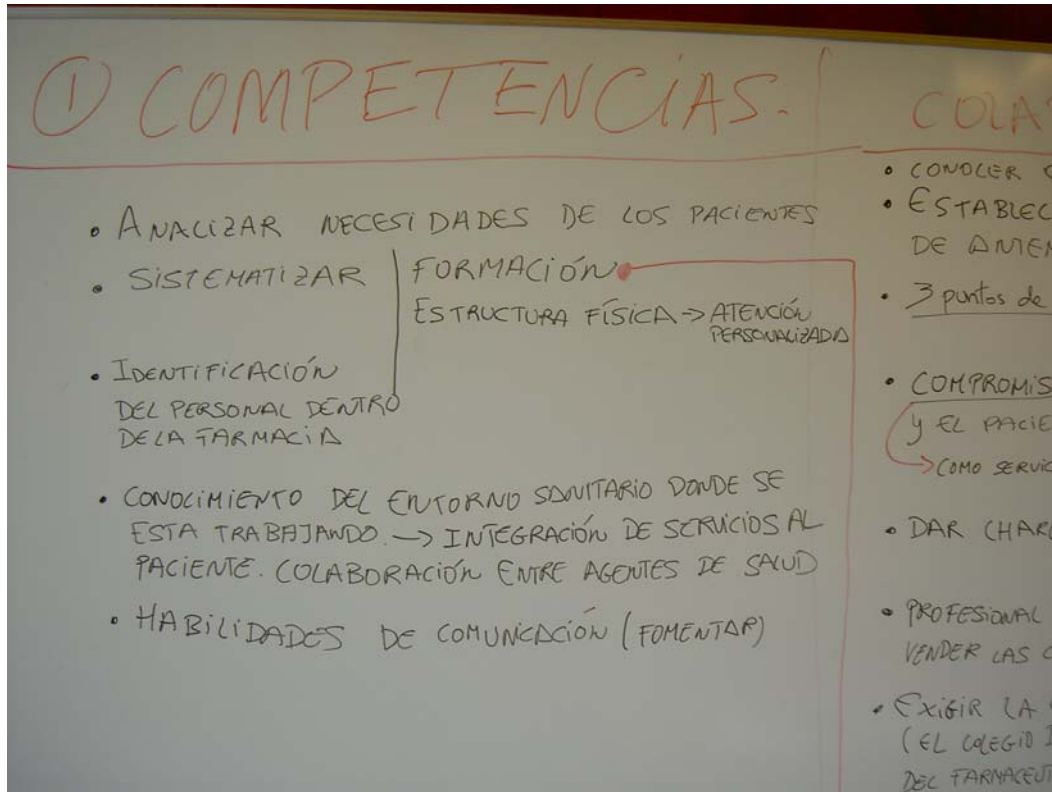 ① COMPETENCIAS.
• ANALIZAR NECESIDADES DE LOS PACIENTES
• SISTEMATIZAR
FORMACIÓN
ESTRUCTURA FÍSICA -> ATENCIÓN
PERSONALIZADA
• IDENTIFICACIÓN
DEL PERSONAL DENTRO
DE LA FARMACIA
• CONOCIMIENTO DEL ENTORNO SANITARIO DONDE SE
ESTA TRABAJANDO. -> INTEGRACIÓN DE SERVICIOS AL
PACIENTE. COLABORACIÓN ENTRE AGENTES DE SALUD
• HABILIDADES DE COMUNICACIÓN (FOMENTAR)
• CONOCER
• ESTABLEC
DE
• 3 puntos de
• COMPROMIS
Y EL PACIE
-> COMO SERVIC
• DAR CHAR
• PROFESIONAL
VENDER LAS
• EXIGIR LA
(EL COLEGIO
DEL FARMACEUT